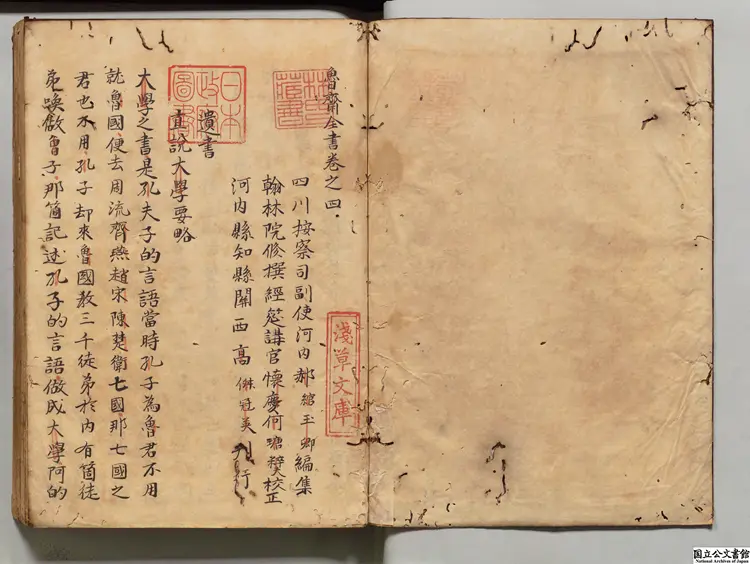 魯齋全書卷之四
四川按察司副使河内郝綰玉卿編集
翰林院修撰經筵講官懷慶何瑭粹夫校正
河内縣知縣關西高傑冠英刊行
遺書
直說大學要略
大學之書是孔夫子的言語當時孔子為魯君不用
就魯國便去周流齊燕趙宋陳楚衛七國那七國之
君也不用孔子却來魯國教三千徒弟於内有箇徒
弟喚做曾子那箇記述孔子的言語做成大學阿的
日本
政府
圖書
林氏
藏書
淺草文庫
国立公文書館
National Archives of Japan